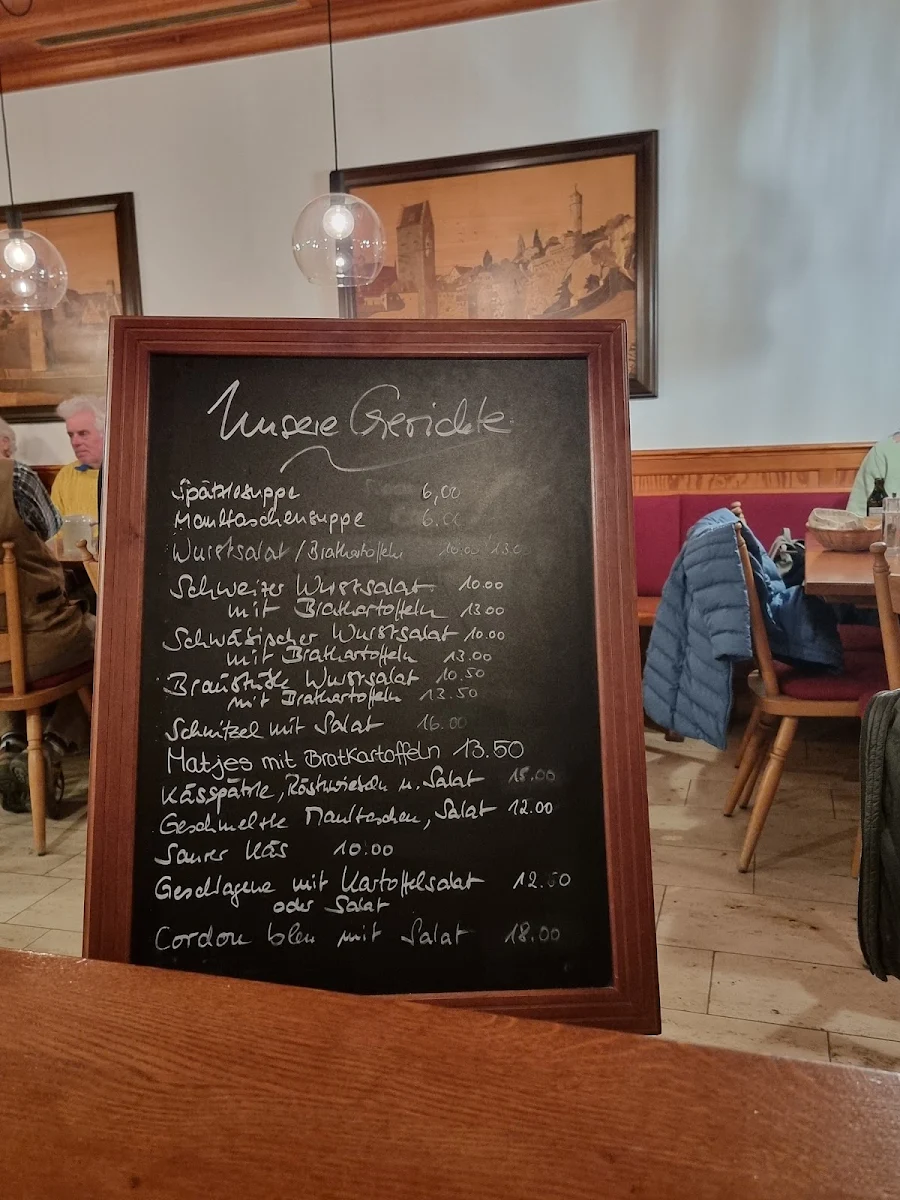 Unsere Gerichte
Spätzlesuppe 6,00
Maultaschensuppe 6.00
Wurstsalat / Bratkartoffeln 10.00 13.00
Schweizer Wurstsalat 10.00
mit Bratkartoffeln 13.00
Schwäbischer Wurstsalat 10.00
mit Bratkartoffeln 13.00
Wurstsalat 10.50
mit Bratkartoffeln 13.50
Schnitzel mit Salat 16.00
Matjes mit Bratkartoffeln 13.50
Kässpätzle, Röstzwiebeln u. Salat 15.00
Geschmelzte Maultaschen, Salat 12.00
Saurer Käs 10.00
Geschlagene mit Kartoffelsalat 12.50
oder Salat
Cordon bleu mit Salat 18.00